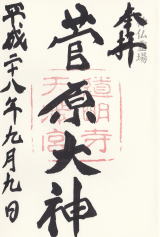 奉拝
菅原大神
道明寺
天満宮
平成二十八年九月九日